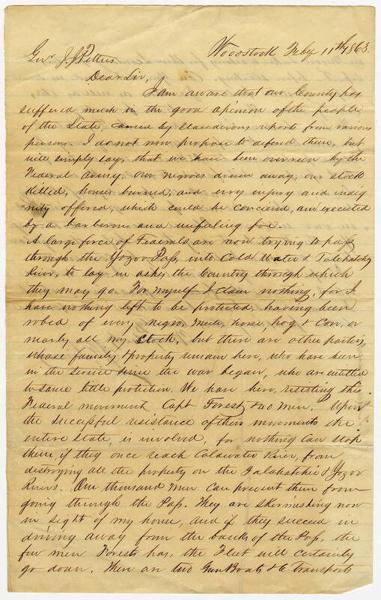 Woodstock Feby 11th 1863.
Gov. J. J. Pettus
Dear Sir,
I am aware that our County has
suffered much in the good opinion of the people
of the State, caused by slanderous reports from various
persons. I do not now propose to defend them, but
will simply say, that we have been overrun by the
Federal Army. Our negroes driven away, our stock
killed, houses burned, and every injury and indig
nity offered, which could be conceived, and executed
by a barbarous and unfeeling foe.
A large force of Federals are now trying to pass
through the Yazoo Pass, into Cold Water & Talahatchy
River, to lay in ashes the Country through which
they may go. For myself I claim nothing, for I
have nothing left to be protected, having been
robed of every negro, mule, horse, hog & corn, or
nearly all my stock, but there are other parties,
whose family & property remain here, who have been
in the service since the war began, who are entitled
to some little protection. We have here, resisting this
Federal movement, Capt Forest, 200 men. Upon
the successful resistance of these movements the
entire State, is involved, for nothing can stop
them if they once reach Coldwater River, from
destroying all the property on the Talahatchie & Yazoo
Rivers. One thousand men can prevent them from
going through the Pass. They are skirmishing now
in sight of my house, and if they succeed in
driving away from the banks of the Pass, the
few men Forest has, the Fleet will certainly
go down. There are two Gun Boats & 6 transports